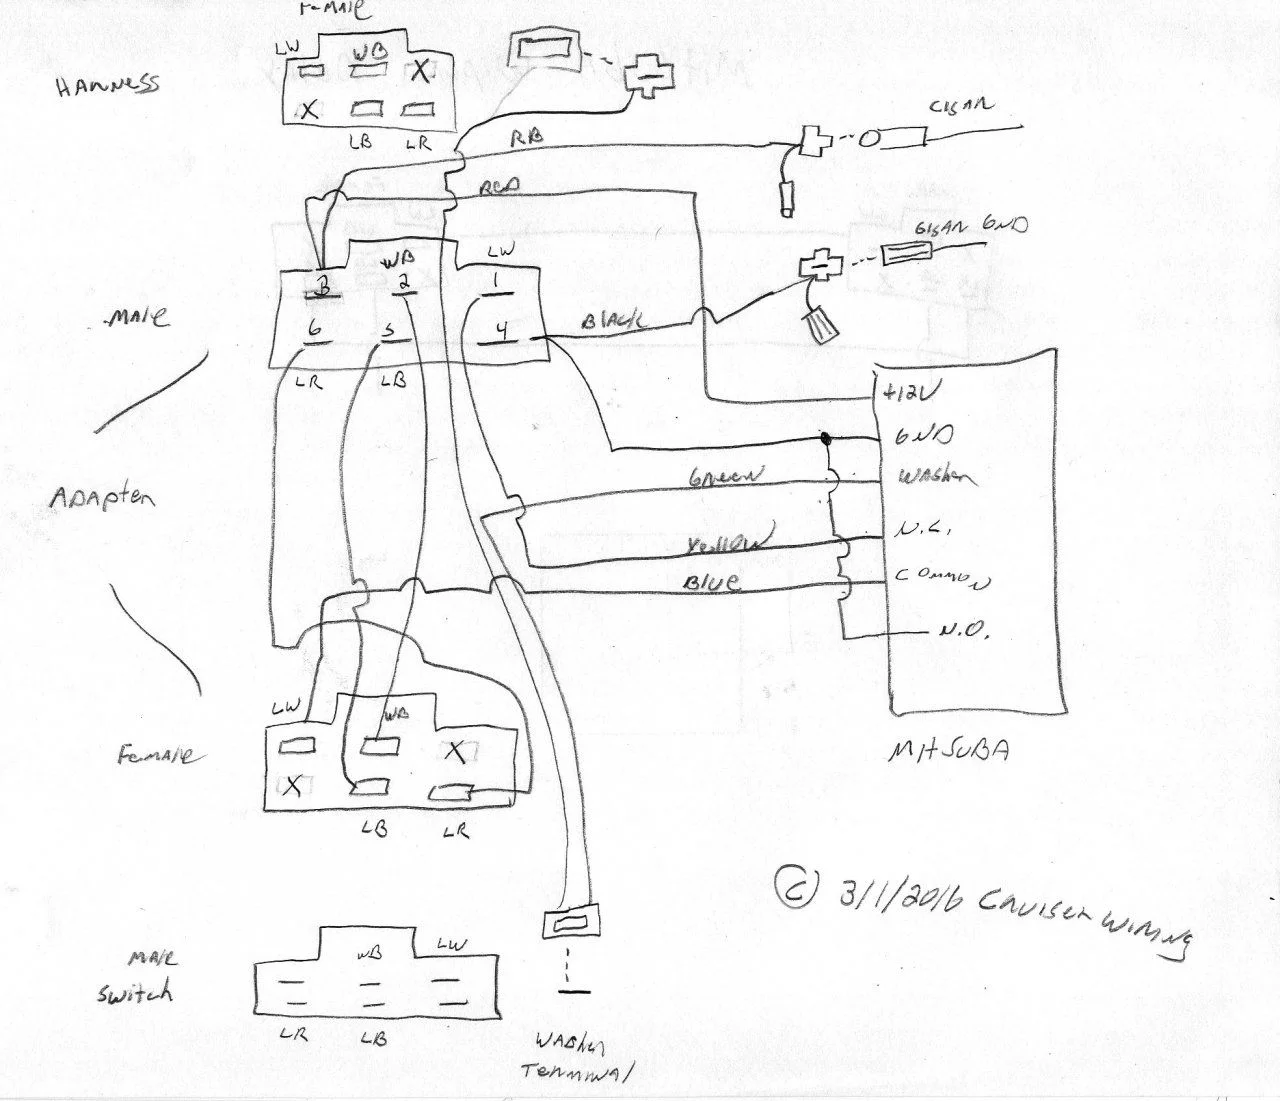 Female
LW
WB
X
HARNESS
X
LB
LR
CIGAR
RB
RED
CIGAR GND
WB
LW
3
2
1
MAle
6
5
4
BlAcK
LR
LB
+12V
GND
ADApter
Green
WAsher
Yellow
N.C.
Blue
COMMON
N.O.
LW
WB
FeMAle
X
X
MITSUBA
LB
LR
© 3/1/2016 Cruiser Wiring
MAle
Switch
WB
LW
LR
LB
WAsher
Terminal